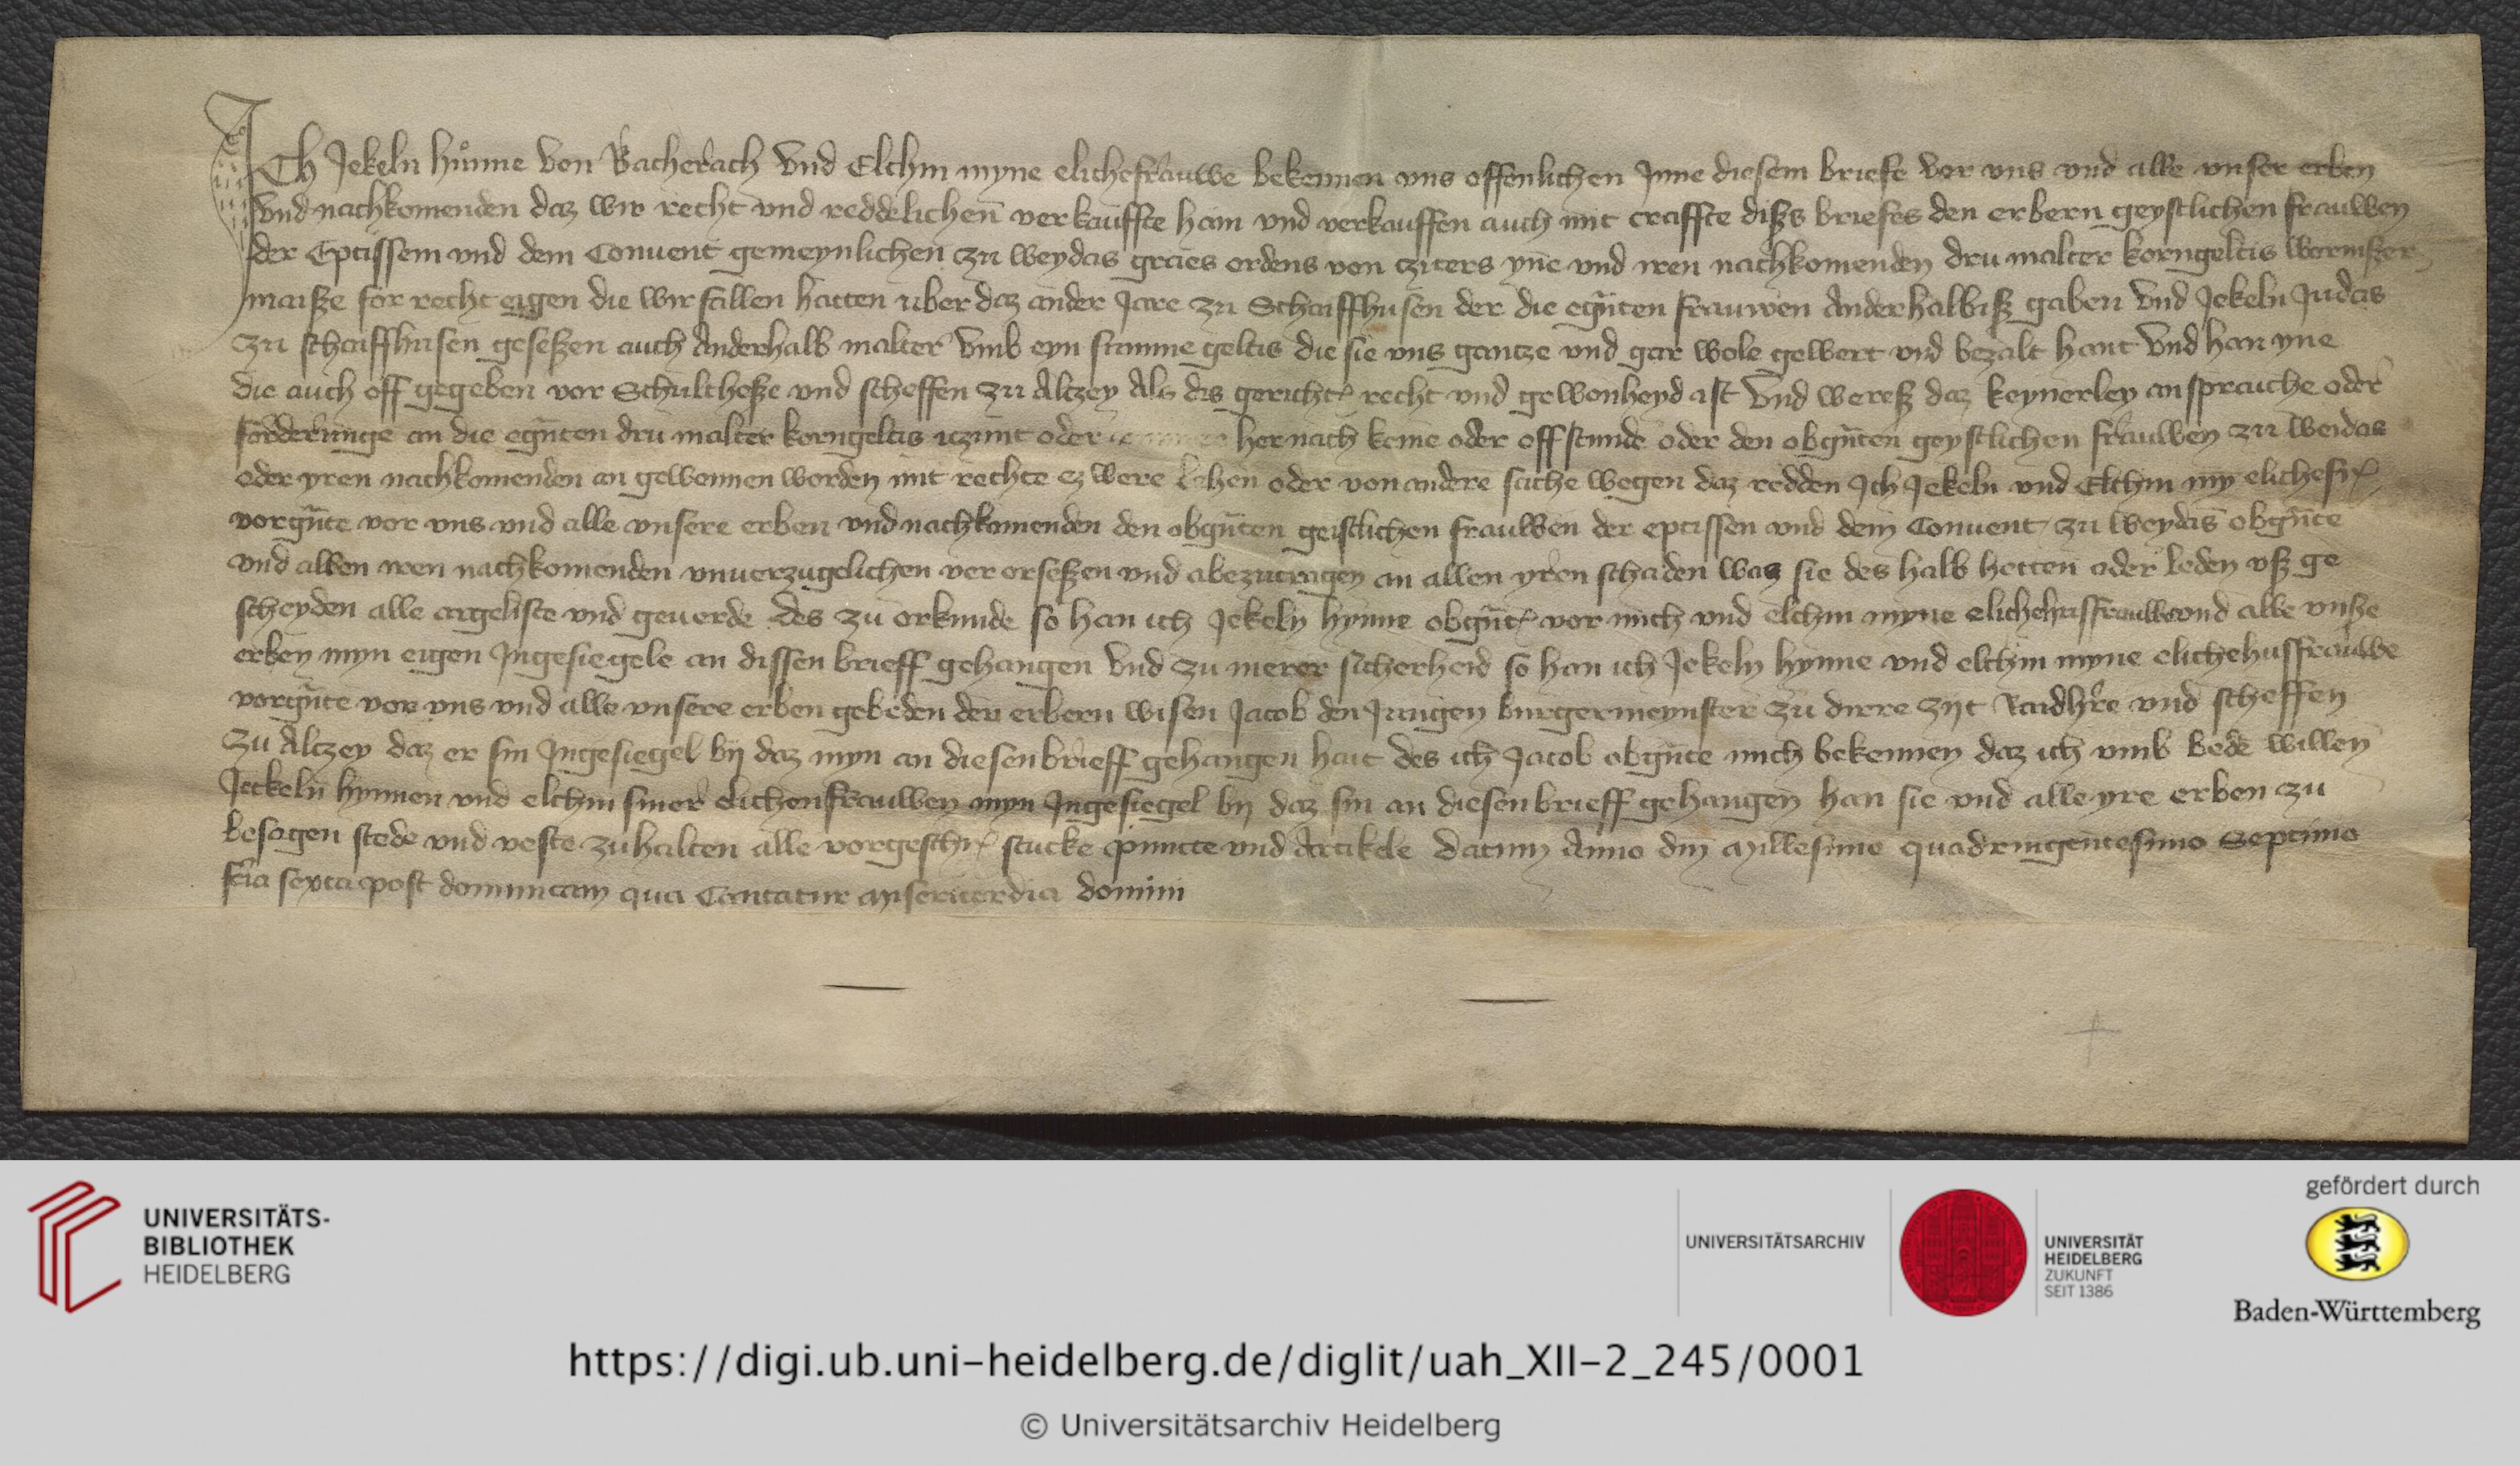 ICh Jekeln hůnne von Bacherach vnd Elchin myne elichefrauwe bekennen vns offenlichen Jnne diesem briefe vor vns vnd alle vnser erben
vnd nachkomenden daz wir recht vnd reddelichen verkauffte han vnd verkauffen auch mit craffte diß brieffes den erbern geystlichen frauwen
der Eptissem vnd dem Conuent gemeynlichen zu weydas graes ordens von cziters yne vnd iren nachkomenden dru malter korngeltis wormszer
maisze for recht eigen die wir fallen hatten uber daz ander Jare zu Schaffhusen der die egn̄ten frauwen anderhalbisz gaben vnd Jekeln Judas
zu schaffhusen geseszen auch anderhalb malter vmb eyn summe geltis die sie vns gantze vnd gar wole gewert vnd bezalt hant vnd han yne
die auch off gegeben vor Schultheße vnd scheffen zu Altzey als dis gerichts recht vnd gewonheyd ist vnd weresz daz keynerley ansprauche oder
forderunge an die egn̄ten dru malter korngeltis iczunt oder her nach keme oder offstunde oder den obgn̄ten geystlichen frauwen zu weidas
oder yren nachkomenden an gewonnen worden mit rechte ez were lehen oder von andere sache wegen daz redden Ich Jekeln vnd Elchin my elichefr
vorgn̄te vor vns vnd alle vnsere erben vnd nachkomenden den obgn̄ten geistlichen frauwen der eptissen vnd dem Conuent zu weydas obgn̄te
vnd allen iren nachkomenden vnuerzugelichen ver orseszen vnd abezutragen an allen yren schaden was sie des halb hetten oder leden vsz ge
scheyden alle argeliste vnd geuerde des zu orkunde so han ich Jekeln hynne obgn̄t vor mich vnd elchin myne elichehusfrauwe vnd alle vnsze
erben myn eigen Jngesiegele an dissen brieff gehangen vnd zu merer sicherheid so han ich Jekeln hynne vnd elchin myne elichehusfrauwe
vorgn̄te vor vns vnd alle vnsere erben gebeden den erbern wisen Jacob den Jungen burgermeynster zu dirre zijt Raidhr̄e vnd scheffen
zu Altzey daz er sin Jngesiegel bij daz myn an diesen brieff gehangen hait des ich Jacob obgn̄te mich bekennen daz ich vmb bede willen
Jeckeln hynnen vnd elchin siner elichenfrauwen myn Jngesiegel bij daz sin an diesen brieff gehangen han sie vnd alle yre erben zu
besagen stede vnd veste zuhalten alle vorgeschr stucke puncte vnd artikele datum Anno dn̄i millesimo quadringentesimo Septimo
fr̄ia sexta post dominicam qua Cantatur misericordia domini
UNIVERSITÄTS-
BIBLIOTHEK
HEIDELBERG
UNIVERSITÄTSARCHIV
UNIVERSITÄT
HEIDELBERG
ZUKUNFT
SEIT 1386
gefördert durch
Baden-Württemberg
https://digi.ub.uni-heidelberg.de/diglit/uah_XII-2_245/0001
© Universitätsarchiv Heidelberg